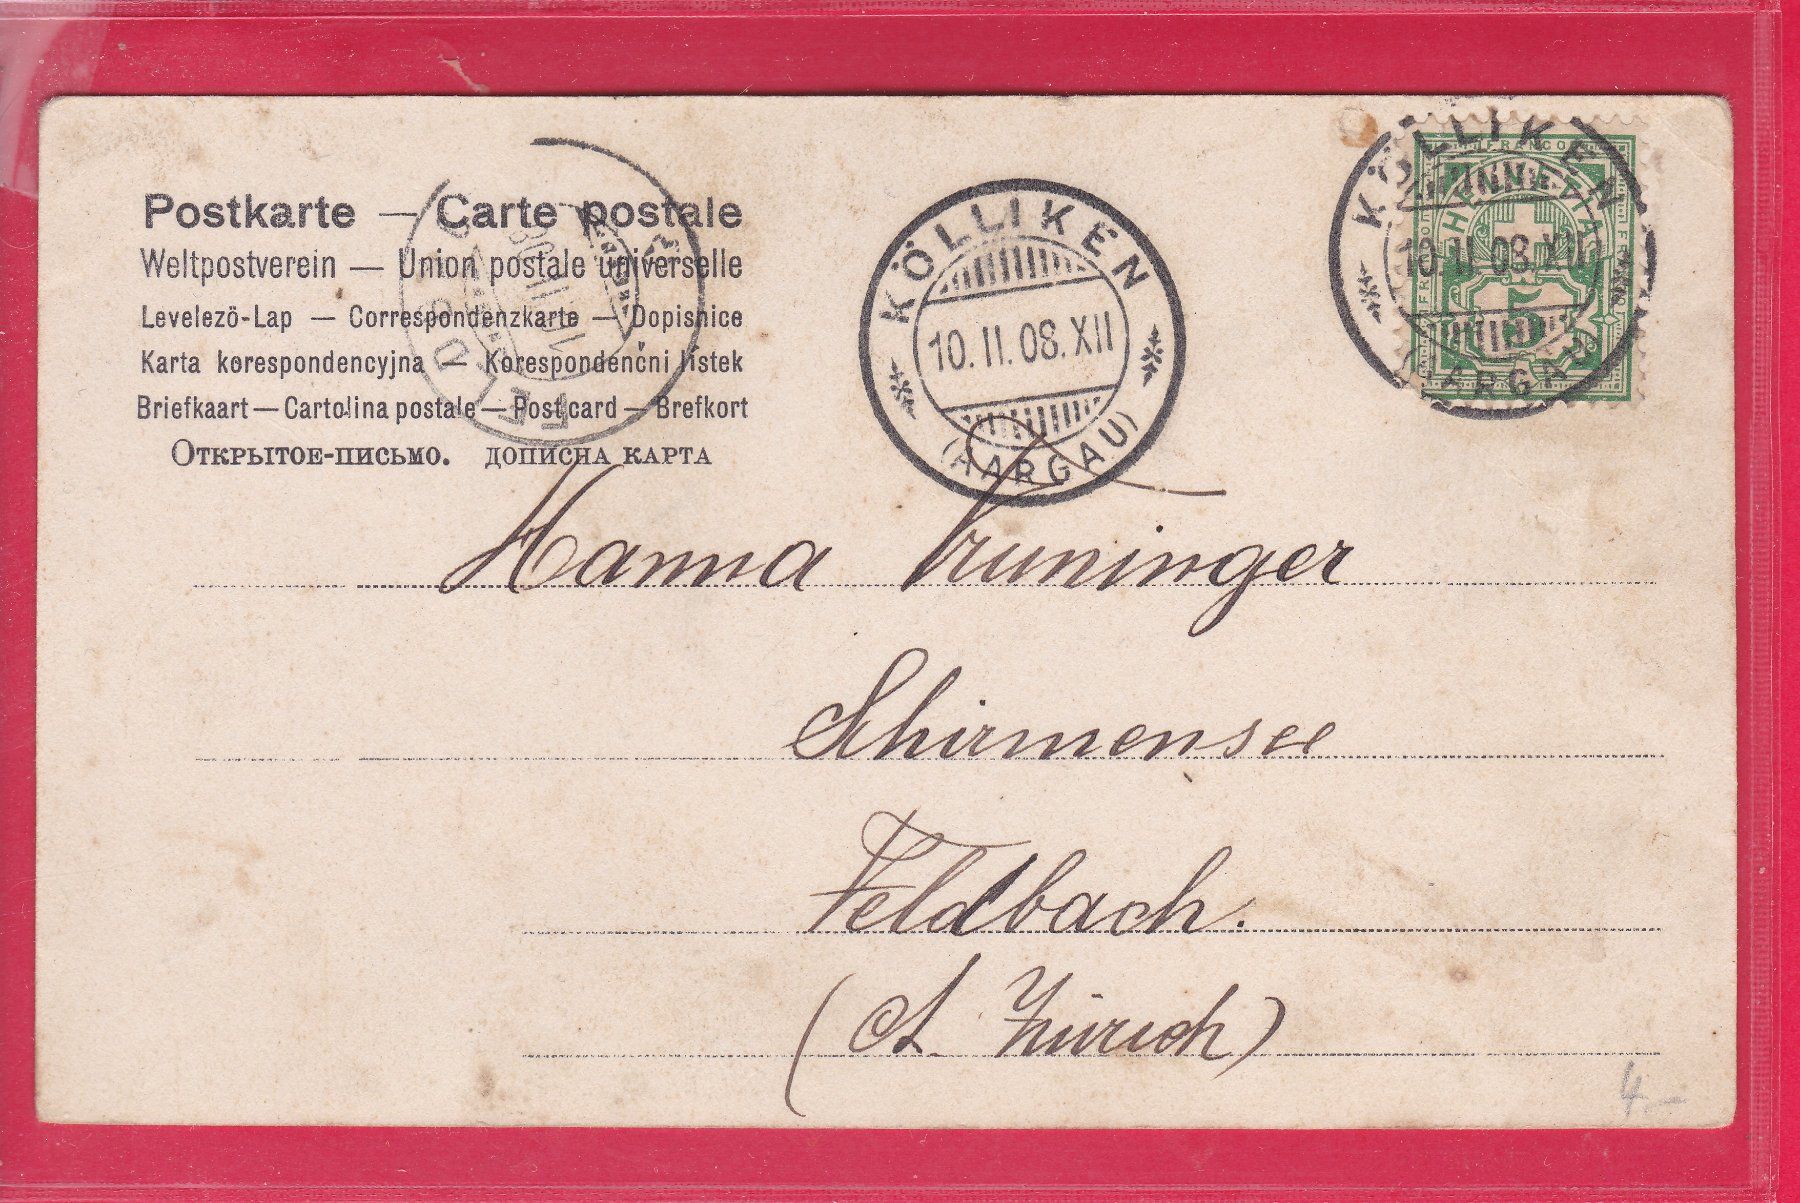 Postkarte — Carte postale
Weltpostverein — Union postale universelle
Levelezö-Lap — Correspondenzkarte — Dopisnice
Karta korespondencyjna — Korespondenčni listek
Briefkaart — Cartolina postale — Post card — Brefkort
Открытое-письмо. дописна карта
KÖLLIKEN
10. II. 08. XII
(AARGAU)
KÖLLIKEN
10. II. 08. XII
(AARGAU)
FRANCO
HELVETIA
5
Hanna
Schirmensee
Feldbach.
(Zürich)
4-